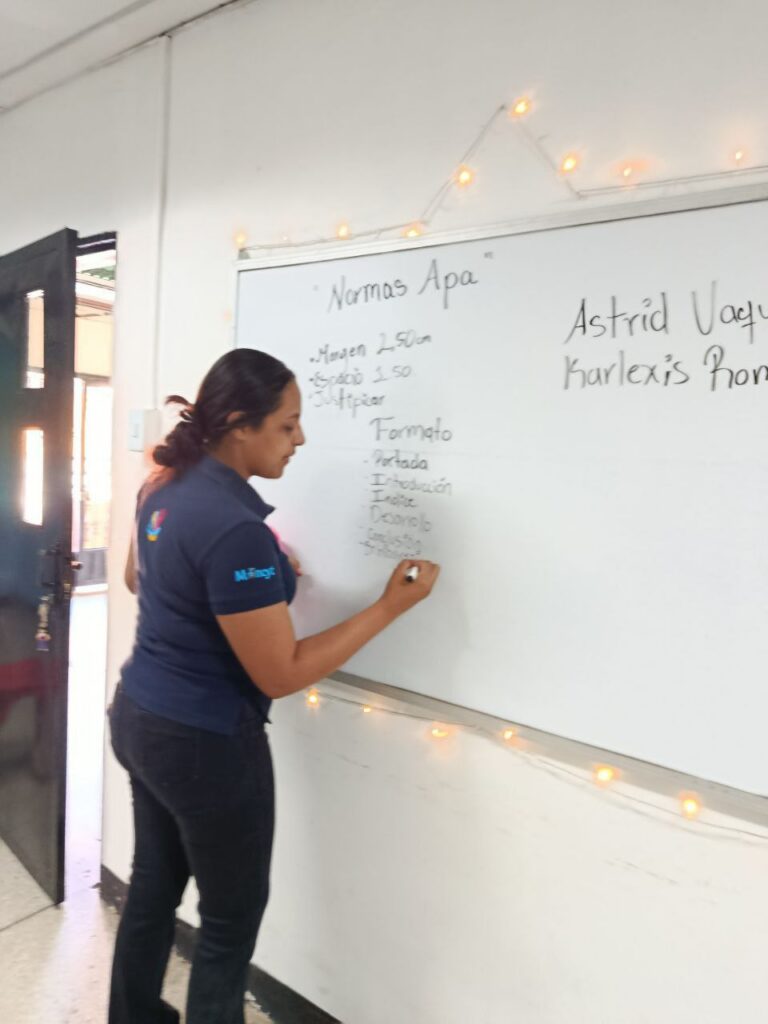 "Normas Apa"
• Margen 2,50cm
• Espacio 1.50
• Justificar
Formato
- Portada
- Introducción
- Indice
- Desarrollo
- Conclusión
Astrid Vaqu
Karlexis Rom
Mincyt